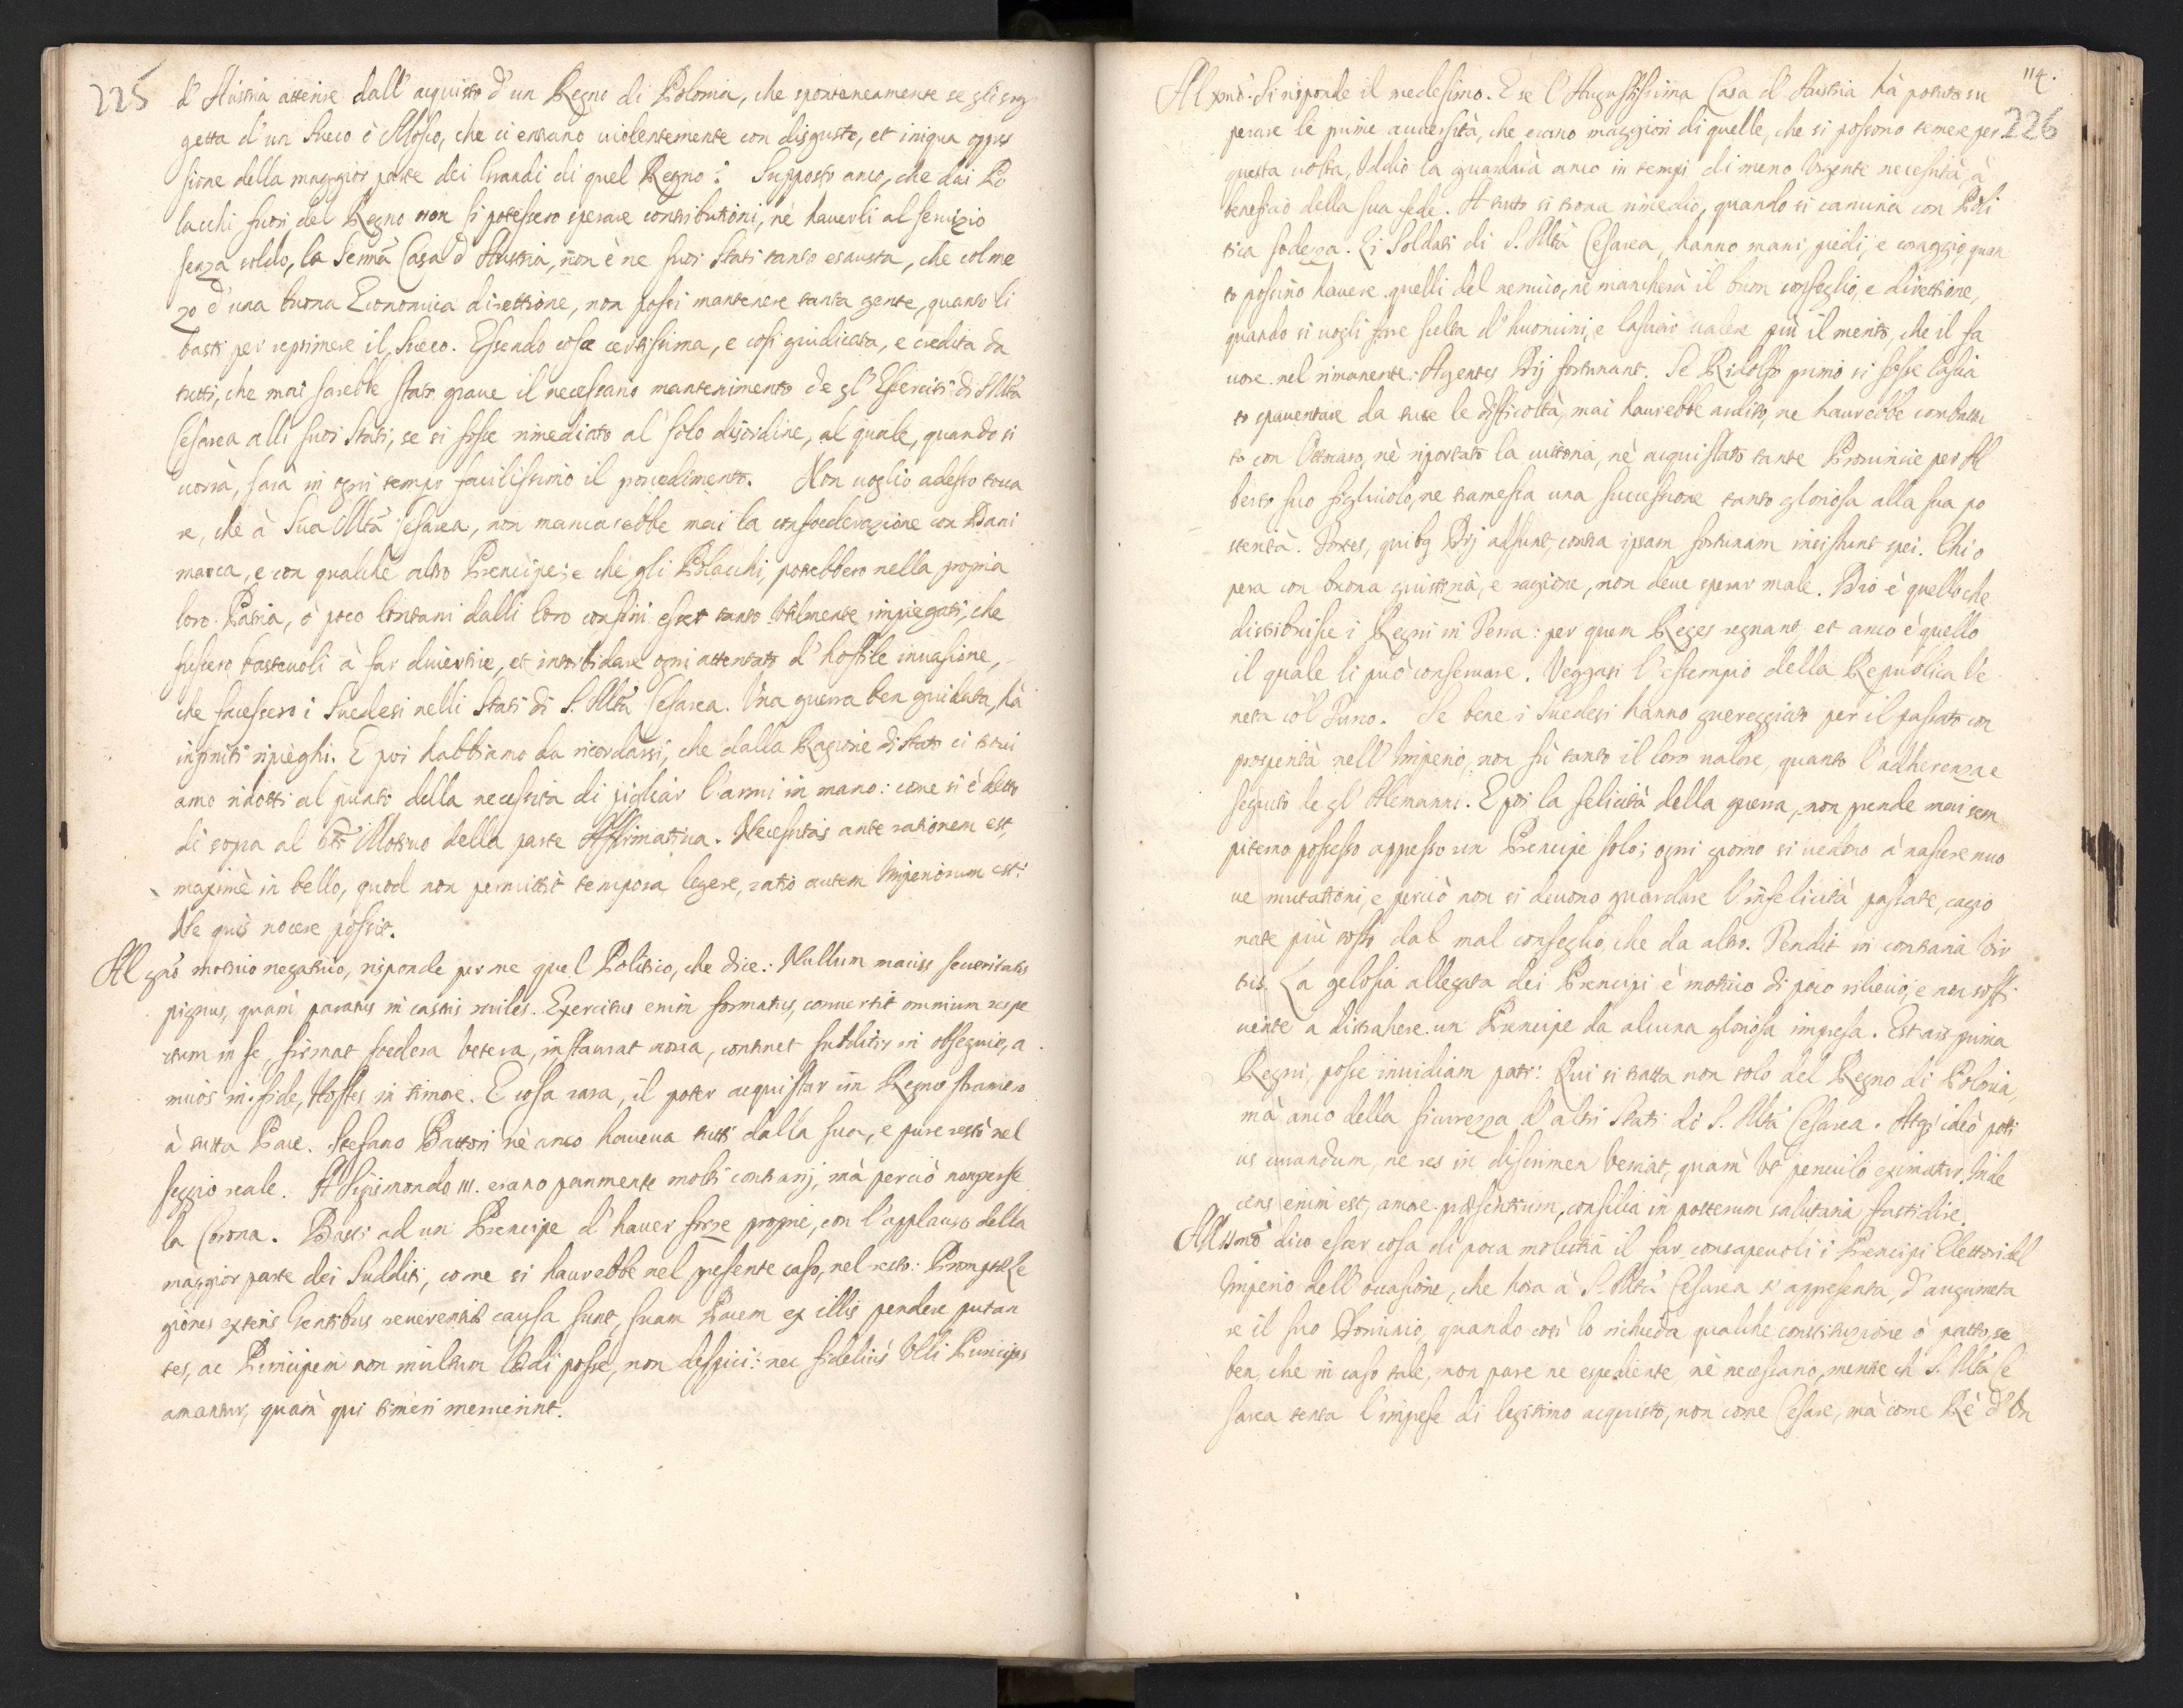 225
d' Austria attenre dall' acquisto d' un Regno di Polonia, che spontaneamente se gli sog
getta d' un Sueco ò Mosco, che ci entrano uiolentemente con disgusto, et iniqua oppres
sione della maggior parte dei Grandi di quel Regno? Supposto anco, che dai Po
lacchi fuori del Regno non si potessero sperare contributioni, nè hauerli al seruizio
senza soldo, la Sermã Casa d' Austria, non è ne suoi Stati tanto esausta, che col me
zo d' una buona Economica direttione, non possi mantenere tanta gente, quanto li
basti per reprimere il Sueco. Essendo cosa certissima, e così giudicata, e credita da
tutti, che mai sarebbe stato graue il necessario mantenimento de gl' Eserciti di S. Mtà
Cesarea alli suoi Stati, se si fosse rimediato al solo disordine, al quale, quando si
uorrà, sarà in ogni tempo facilissimo il prouedimento. Non uoglio adesso tocca
re, che à Sua Mtà Cesarea, non mancarebbe mai la confoederazione con Dani
marca, e con qualche altro Prencipe; e che gli Polacchi, potrebbero nella propria
loro Patria, ò poco lontani dalli loro confini esser tanto utilmente impiegati, che
fussero basteuoli à far diuertire, et intorbidare ogni attentato d' hostile inuasione,
che facessero i Suedesi nelli Stati di S. Mtà Cesarea. Una guerra ben guidata, hà
infiniti ripieghi. E poi habbiamo da ricordarsi, che dalla Ragione di stato ci troui
amo ridotti al punto della necessità di pigliar l' armi in mano: come si è detto
di sopra al 6to Motiuo della parte Affirmatiua. Necessitas ante rationem est,
maximè in bello, quod non permittit tempora legere, ratio autem Imperiorum est:
Ne quis nocere possit.
Al 9no motiuo negatiuo, risponde per me quel Politico, che dice: Nullum maius securitatis
pignus, quàm paratus in castris miles. Exercitus enim formatus, conuertit omnium respe
ctum in se, firmat foedera uetera, instaurat noua, continet subditos in obsequio, a
micos in fide, Hostes in timore. E cosa rara, il poter acquistar un Regno straniero
à tutta Pace. Stefano Battori nè anco haueua tutti dalla sua, e pure restò nel
seggio reale. A Sigismondo III. erano parimente molti contrarij, mà perciò non perse
la Corona. Basti ad un Prencipe d' hauer forze proprie, con l' applauso della
maggior parte dei Sudditi, come si haurebbe nel presente caso, nel resto: Promptae Le
giones externis Gentibus reuerentiae causa sunt, suam Pacem ex illis pendere putan
tes, ac Principem non multum laedi posse, non despici: nec fideliùs Ulli Principes
amantur, quàm qui timeri meruerint.
114.
226
Al Xmò: Si risponde il medesimo. E se l' Augustissima Casa d' Austria hà potuto su
perare le prime auuersità, che erano maggiori di quelle, che si possono temere per
questa uolta, Iddio la guardarà anco in tempi di meno Urgente necessità, à
beneficio della sua fede. A tutto si troua rimedio, quando si camina con Poli
tica sodezza. Li Soldati di S. Mtà Cesarea, hanno mani, piedi, e coraggio quan
to possino hauere quelli del nemico, nè mancherà il buon conseglio, e direttione,
quando si uogli fare scelta d' huomini, e lasciar ualere più il merito, che il fa
uore. nel rimanente: Agentes Dij fortunant. Se Ridolfo primo si fosse lascia
to spauentare da tute le difficoltà, mai haurebbe ardito, ne haurebbe combattu
to con Ottocaro, nè riportato la uittoria, nè acquistato tante Prouincie per Al
berto suo figliuolo, ne tramessa una successione tanto gloriosa alla sua po
sterità. Fortes, quibus Dij adsunt, contra ipsam fortunam insistunt spei. Chi o
pera con buona giustizia, e ragione, non deue sperar male. Dio è quello che
distribuisce i Regni in Terra: per quem Reges regnant, et anco è quello
il quale li può conseruare. Veggasi l' essempio della Republica Ve
neta col Turco. Se bene i Suedesi hanno guereggiato per il passato con
prosperità nell' Imperio, non fù tanto il loro ualore, quanto l' adherenza e
seguito de gl' Alemanni. E poi la felicità della guerra, non prende mai sem
piterno possesso appresso un Prencipe solo; ogni giorno si uedono à nascere nuo
ue mutationi, e perciò non si deuono guardare l' infelicità passate, cagio
nate più tosto dal mal conseglio, che da altro. Tendit in contraria Vir
tus. La gelosia allegata dei Prencipi è motiuo di poco rilieuo, e non soffi
ciente a distrahere un Prencipe da alcuna gloriosa impresa. Est ars prima
Regni, posse inuidiam pati. Qui si tratta non solo del Regno di Polonia,
mà anco della sicurezza d' altri Stati di S. Mtà Cesarea. Atq' ideò poti
us curandum, ne res in discrimen ueniat, quàm Ut periculo eximatur. Inde
cens enim est, amore praesentium, consilia in posterum salutaria fastidire.
All' XImò dico esser cosa di poca molestia il far consapeuoli i Prencipi Elettori del
Imperio dell' occasione, che hora à S. Mtà Cesarea s' appresenta, d' augmenta
re il suo Dominio, quando così lo richieda qualche constituzione ò patto, se
ben, che in caso tale, non pare ne espediente, nè necessario, mentre ch S. Mtà Ce
sarea tenta l' imprese di legitimo acquisto, non come Cesare, mà come Rè d' Un